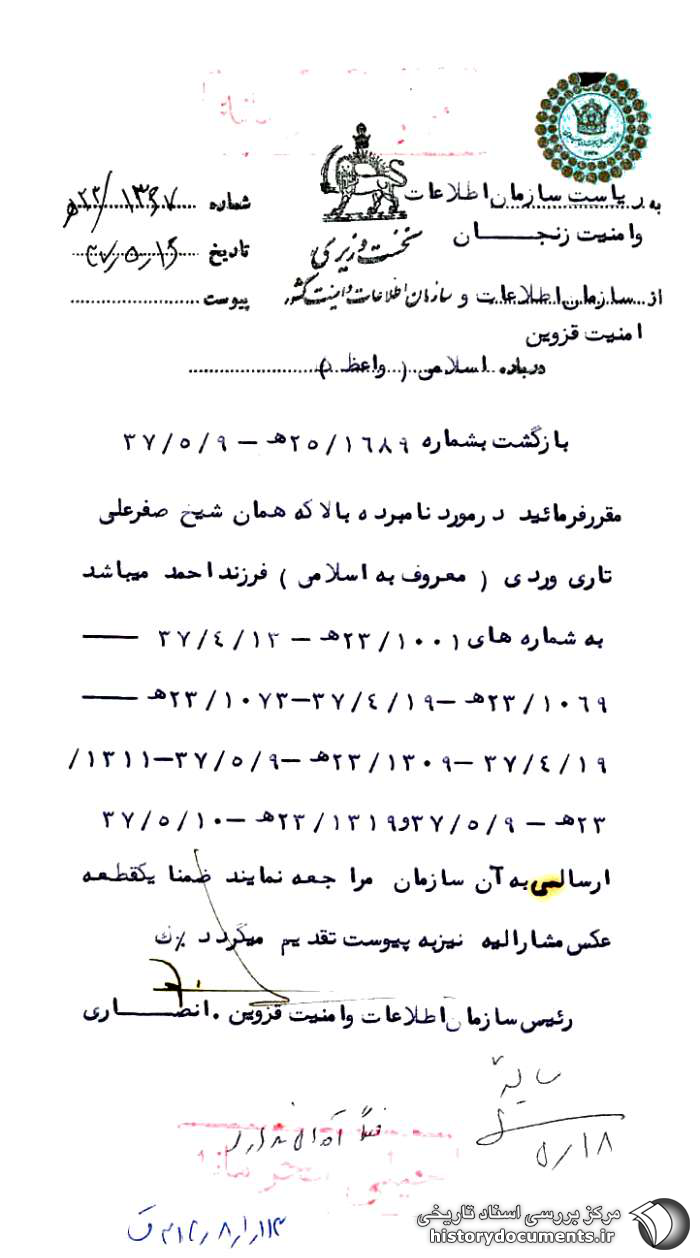 به ریاست سازمان اطلاعات
وامنیت زنجـــان
نخست وزیری
سازمان اطلاعات و امنیت کشور
شماره ۱۳۶۷/
تاریخ
پیوست
از سازمان اطلاعات و
امنیت قزوین
درباره اسلامی (واعظ)
بازگشت بشماره ۲۵/۱۶۸۹هـ – ۳۷/۵/۹
مقررفرمائید درمورد نامبرده بالا که همان شیخ صفرعلی
تاری وردی ( معروف به اسلامی ) فرزند احمد میباشد
به شماره های ۲۳/۱۰۰۱هـ – ۳۷/۴/۱۲ ——
۲۳/۱۰۶۹هـ –۳۷/۴/۱۹–۲۳/۱۰۷۳هـ ——
۳۷/۴/۱۹ –۲۳/۱۳۰۹هـ –۳۷/۵/۹–۱۳۱۱/
۲۳هـ – ۳۷/۵/۹و۲۳/۱۳۱۹هـ –۳۷/۵/۱۰
ارسالی به آن سازمان مراجعه نمایند ضمنا یکقطعه
عکس مشارالیه نیزبه پیوست تقدیم میگردد ٪ ک
رئیس سازمان اطلاعات وامنیت قزوین . انصــاری
۵/۱۸
مرکز بررسی اسناد تاریخی
historydocuments.ir